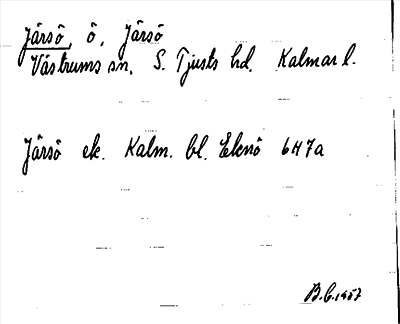 Järsö, ö, Järsö
Västrums sn. S. Tjusts hd. Kalmar l.
Järsö ek. Kalm. bl. Ekenö 6H7a
B.C. 1957